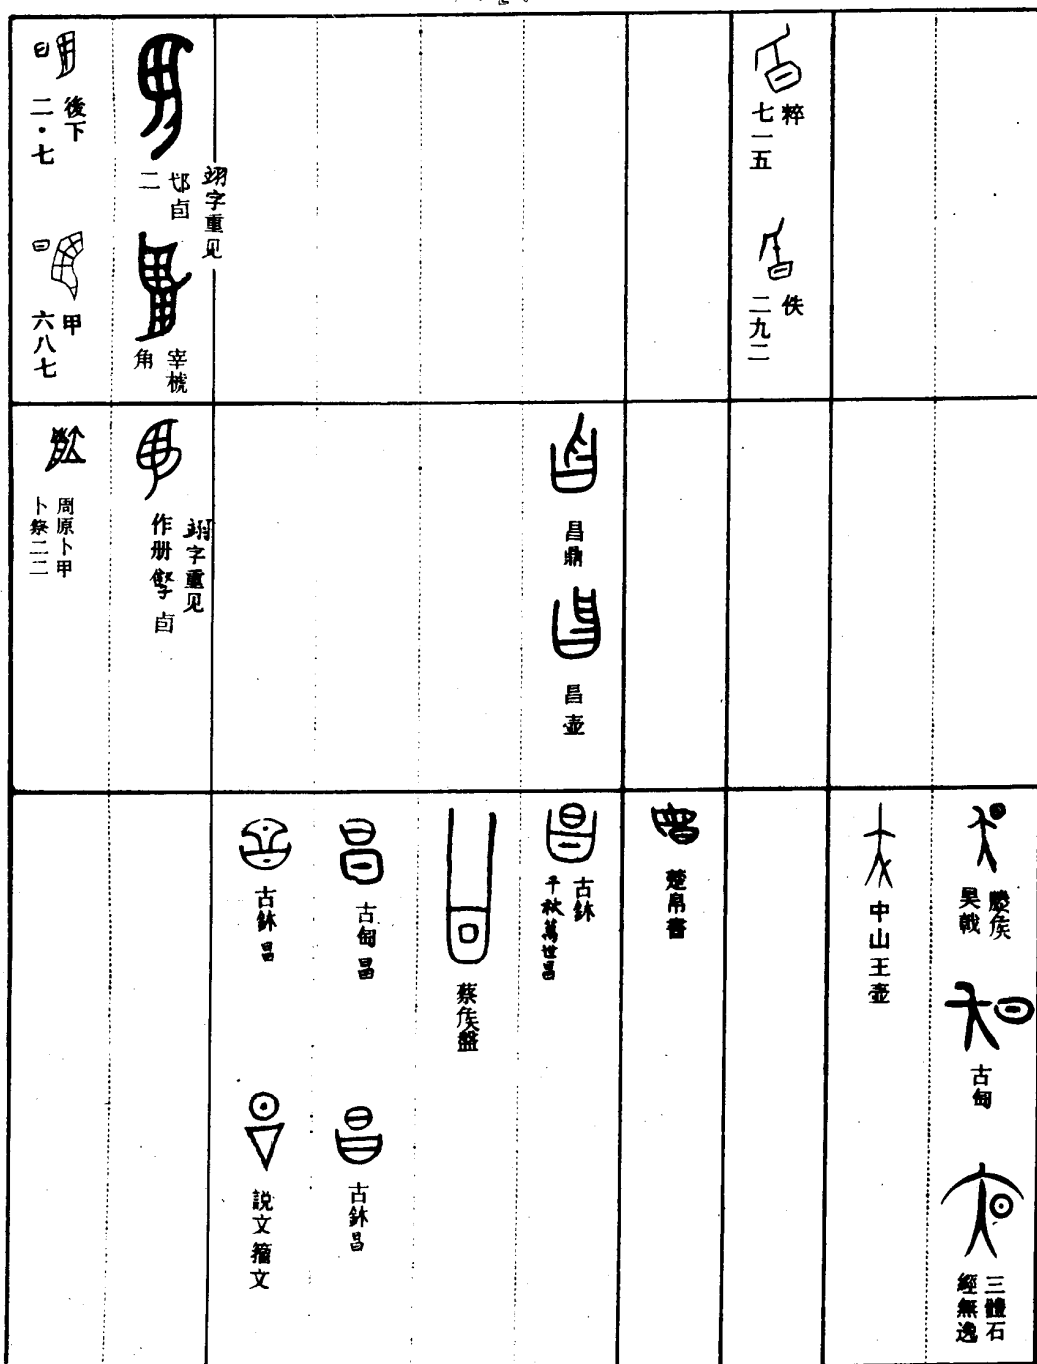 粹
七一五
佚
二九二
翊字重见
邲卣
二
宰椃
角
後下
二·七
甲
六八七
昌鼎
昌壺
翊字重见
作册
卣
周原卜甲
卜祭二二
滕侯
昊戟
古匋
三體石
經無逸
中山王壺
楚帛書
古鉨
千秋萬世昌
蔡侯盤
古匋昌
古鉨昌
古鉨昌
説文籀文